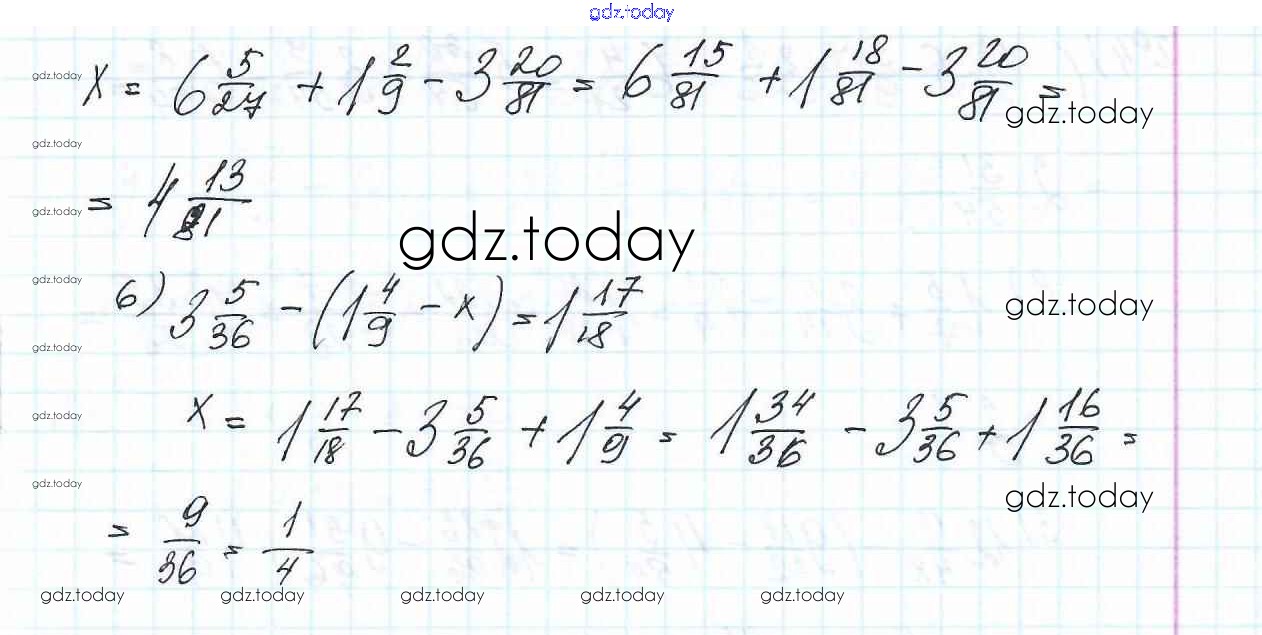 gdz.today
gdz.today
x = 6 5/27 + 1 2/9 - 3 20/81 = 6 15/81 + 1 18/81 - 3 20/81 =
gdz.today
gdz.today
= 4 13/81
gdz.today
gdz.today
gdz.today
б) 3 5/36 - (1 4/9 - x) = 1 17/18
gdz.today
gdz.today
gdz.today
x = 1 17/18 - 3 5/36 + 1 4/9 = 1 34/36 - 3 5/36 + 1 16/36 =
gdz.today
gdz.today
= 9/36 = 1/4
gdz.today gdz.today gdz.today gdz.today gdz.today